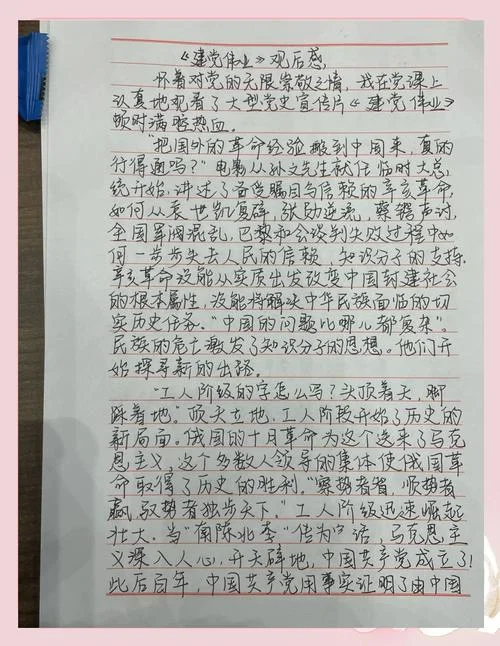 《建党伟业》观后感
怀着对党的无限崇敬之情，我在党课上
认真地观看了大型党史宣传片《建党伟业》
顿时满腔热血。
“把国外的革命经验搬到中国来，真的
行得通吗？”电影从孙文先生就任临时大总
统开始，讲述了备受瞩目与信赖的辛亥革命，
如何从袁世凯复辟，张勋逆流，蔡锷声讨，
全国军阀混乱，巴黎和会谈判失败过程中如
何一步步失去人民的信赖，知识分子的支持。
辛亥革命没能从实质出发改变中国封建社会
的根本属性，没能将解决中华民族面临的切
实历史任务。“中国的问题比哪儿都复杂”。
民族的危亡激发了知识分子的思想。他们开
始探寻新的出路。
“工人阶级的字怎么写？头顶着天，脚
踩着地”。顶天立地，工人阶段开始了历史的
新局面。俄国的十月革命为这个送来了马克
思主义，这个多数人领导的集体使俄国革
命取得了历史的胜利。“察势者智，顺势者
赢，驭势者独步天下。”工人阶级迅速崛起
壮大。当“南陈北李”传为佳话，马克思主
义深入人心，开天辟地，中国共产党成立了！
此后百年，中国共产党用事实证明了由中国